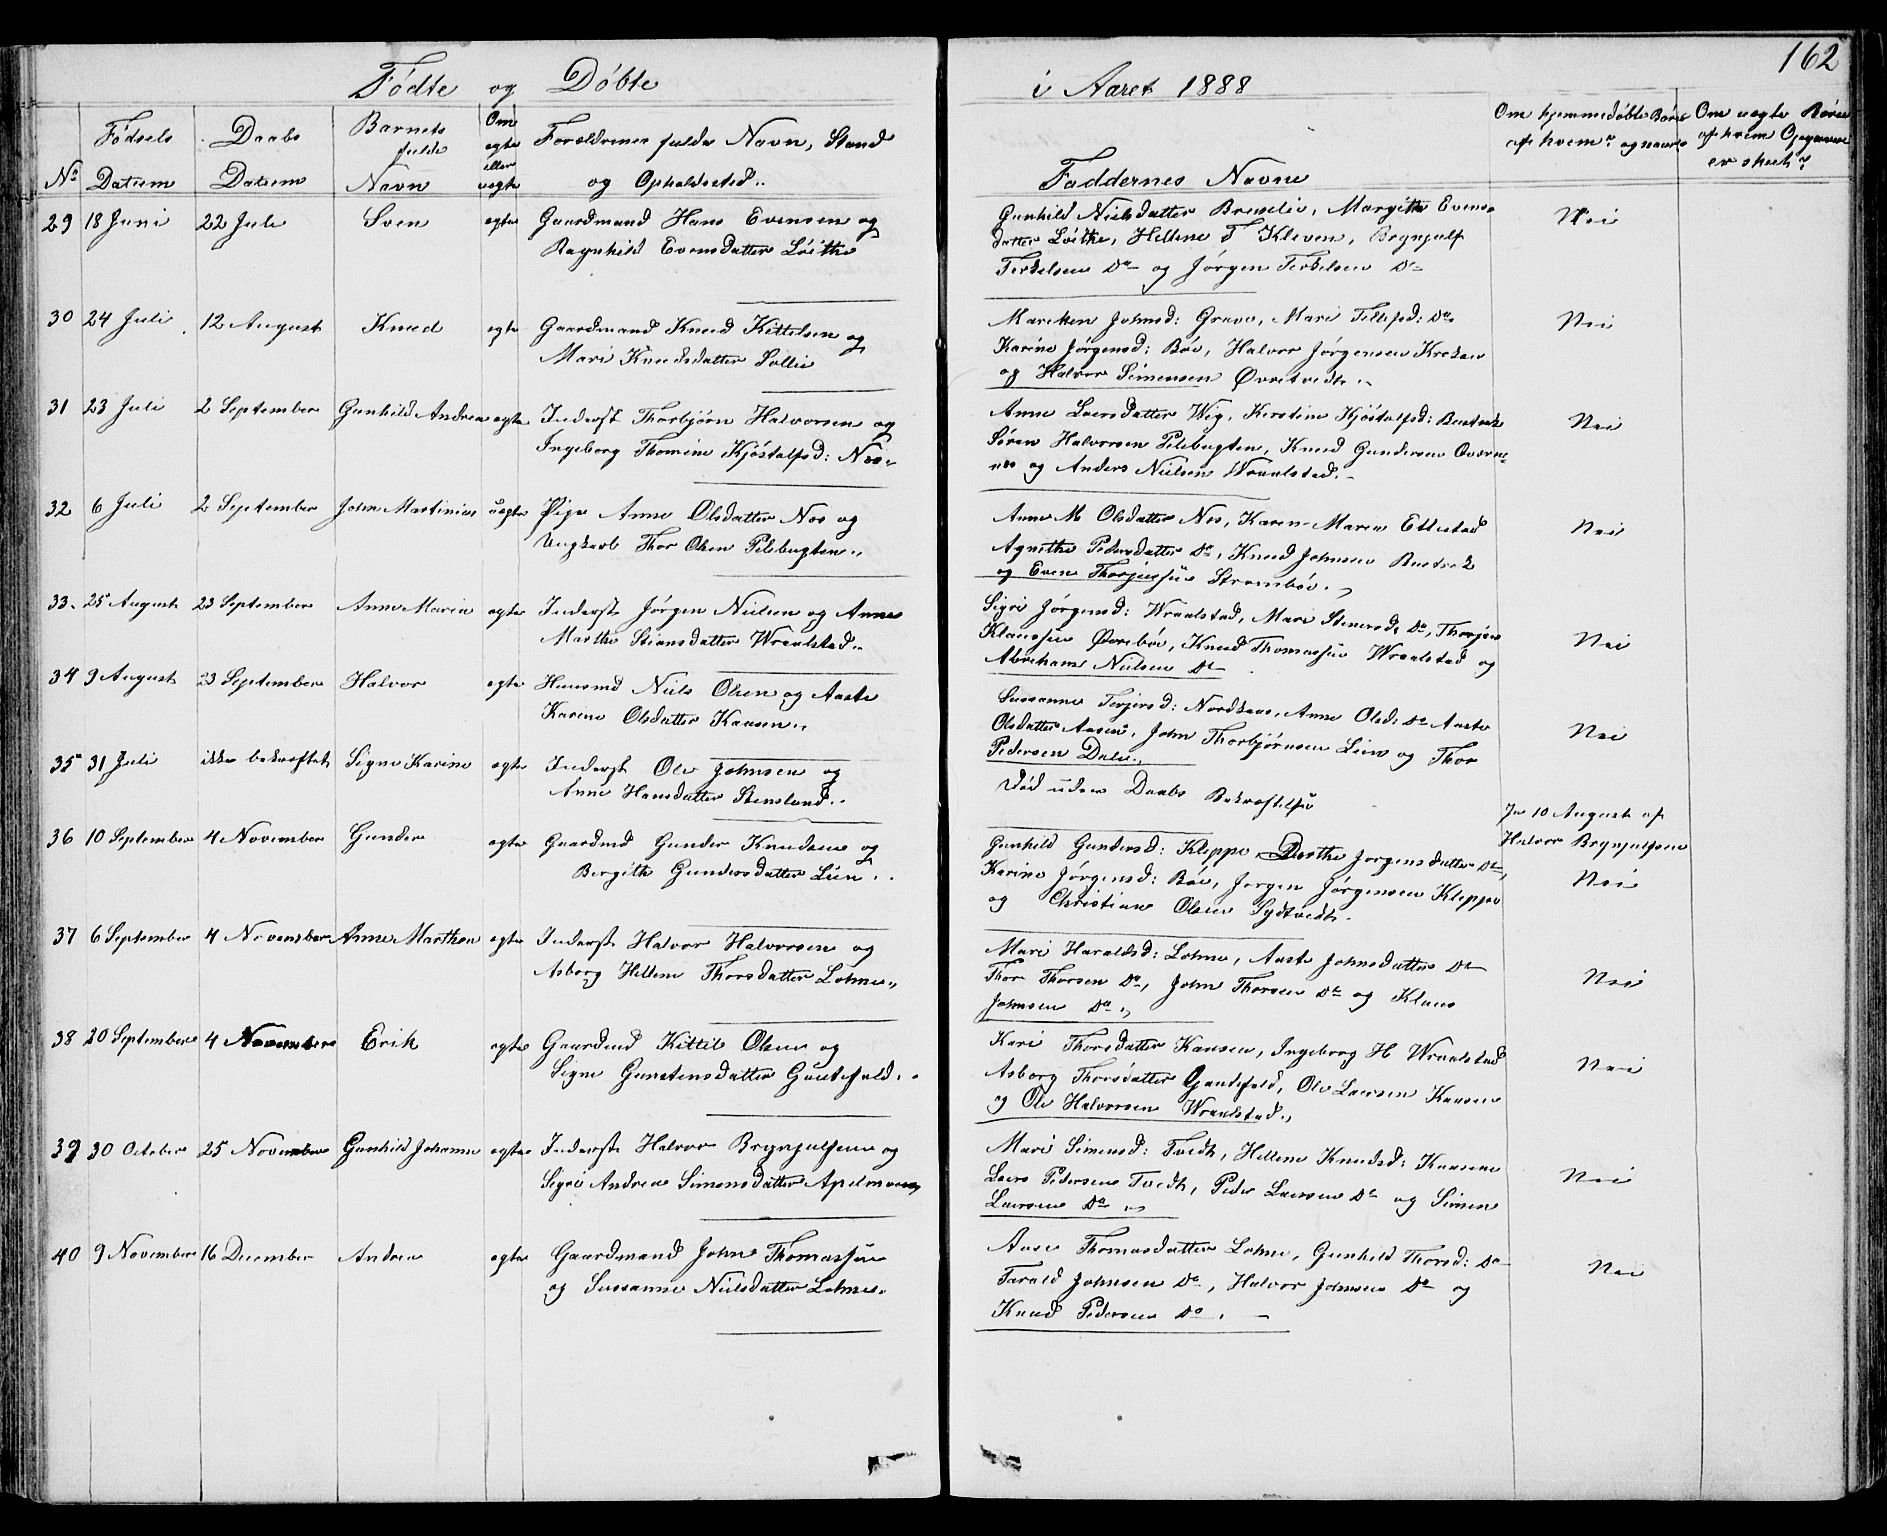 162
Fødte og Døbte i Aaret 1888
No Fødsels Datum Daabs Datum Barnets fulde Navn Om egte eller uegte Forældrenes fulde Navn, Stand og Opholdssted.. Faddernes Navne Om hjemmedøbte Børn af hvem? og naar Om uegte Børn af hvem Opgaven er skeet?
29 18 Juni 22 Juli Sven egte Gaardmand Hans Evensen og
Ragnhild Evensdatter Løithe
Gunhild Nielsdatter Brenelie, Margithe Evens-
datter Løithe, Hellene T Kleven, Brynjulf
Terkelsen Do og Jørgen Terkelsen Do
Nei
30 24 Juli 12 August Knud egte Gaardmand Knud Kittelsen og
Mari Knudsdatter Sollie
Mariken Johnsd: Grave, Mari Tellefsd: Do
Karine Jørgensd: Böe, Halvor Jørgensen Kroken
og Halvor Simensen Øvretvedt.
Nei
31 23 Juli 2 September Gunhild Andrea egte Inderst Thorbjörn Halvorsen og
Ingeborg Thomine Kjöstolfsd: Næs
Anne Larsdatter Wig, Kirstine Kjöstolfsd: Bustrak
Søren Halvorsen Pelebugten, Knud Gundersen Oværn-
næs og Anders Nielsen Wraalstad.
Nei
32 6 Juli 2 September John Martinius uegte Pige Anne Olsdatter Næs og
Ungkarl Thor Olsen Pelebugten..
Anne M Olsdatter Næs, Karen Marie Ettestad
Agnethe Pedersdatter Do, Knud Johnsen Bustrak
og Even Thorjussen Strombøe.
Nei
33. 25 August 23 September Anne Maria egte Inderst Jørgen Nielsen og Anne
Marthe Stiansdatter Wraalstad..
Sigri Jørgensd: Wraalstad, Mari Stenersd: Do, Thorjus
Klaussen Øvrebøe, Knud Thomassen Wraalstad og
Abraham Nielsen Do
Nei
34 9 August 23 September Halvor egte Huusmd Niels Olsen og Aaste
Karine Olsdatter Kaasen..
Sussanne Terjersd: Nordkaas, Anne Olsd: Do Aaste
Olsdatter Aasen, John Thorbjørnsen Lien og Thor
Pedersen Dale..
Nei
35 31 Juli ikke bekræftet Signe Karine egte Inderst Ole Johnsen og
Anne Hansdatter Stensland..
Død uden Daabs Bekræftelse
Ja 10 August af
Halvor Brynjulfsen
36 10 September 4 November Gunder egte Gaardmd Gunder Knudsen og
Bergith Gundersdatter Lien..
Gunhild Gundersd: Kleppe, Dorthe Jorgensdatter Do,
Karine Jørgensd: Böe, Jorgen Jörgensen Kleppe
og Christian Olsen Sydtvedt.
Nei
37 6 September 4 November Anne Marthea egte Inderst Halvor Halvorsen og
Asborg Hellene Thorsdatter Lohne..
Mari Haraldsd: Lohne, Aaste Johnsdatter Do
Thor Thorsen Do, John Thorsen Do og Klaus
Johnsen Do.,
Nei
38 20 September 4 November Erik egte Gaardmd Kittil Olsen og
Signe Gunstensdatter Gautefald..
Kari Thorsdatter Kaasen, Ingeborg H Wraalstad
Asborg Thorsdatter Gautefald, Ole Larsen Kaasen
og Ole Halvorsen Wraalstad.,
Nei
39 30 October 25 November Gunhild Johanne egte Inderst Halvor Brynjulfsen og
Sigri Andrea Simonsdatter
Mari Simensd: Tvedt, Hellene Knudsd: Kaasene
Lars Pedersen Tvedt, Peder Larsen Do og Simen
Larsen Do
Nei
40 9 November 16 December Andrea egte Gaardmand John Thomassen
og Sussanne Nielsdatter Lohne.
Aase Thomasdatter Lohne, Gunhild Thorsd: Do
Tarald Johnsen Do, Halvor Johnsen Do og
Knud Pedersen Do.
Nei